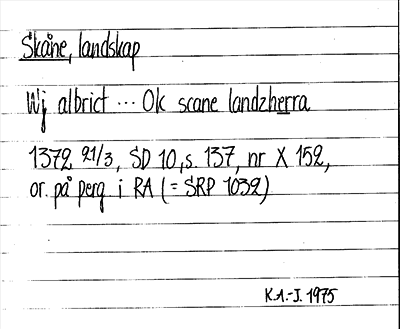 Skåne, landskap
Wj albrict ... Ok scane landzherra
1372 21/3, SD 10, s. 137, nr X 152,
or. på perg i RA (= SRP 1032)
K.A.-J. 1975